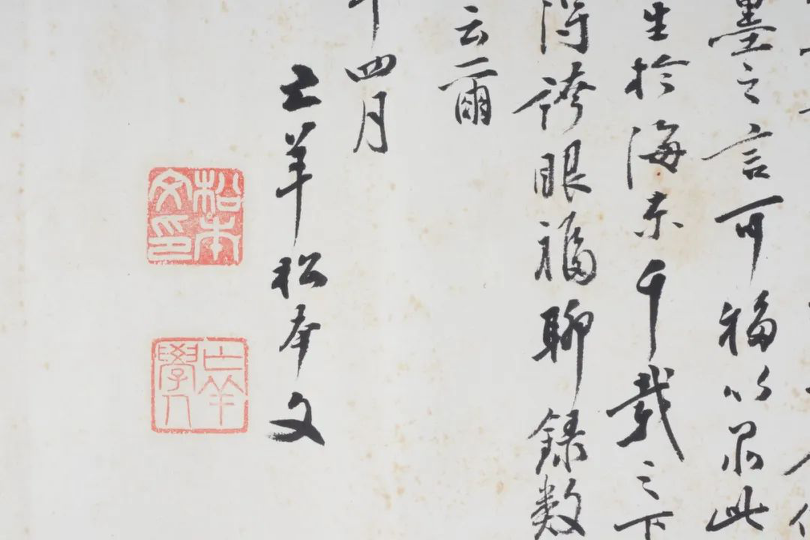 墨之言可福以眾此
生於海東千載之下
得誇眼福聊錄數
云爾
四月
亡羊松本文
松本文印
亡羊學人